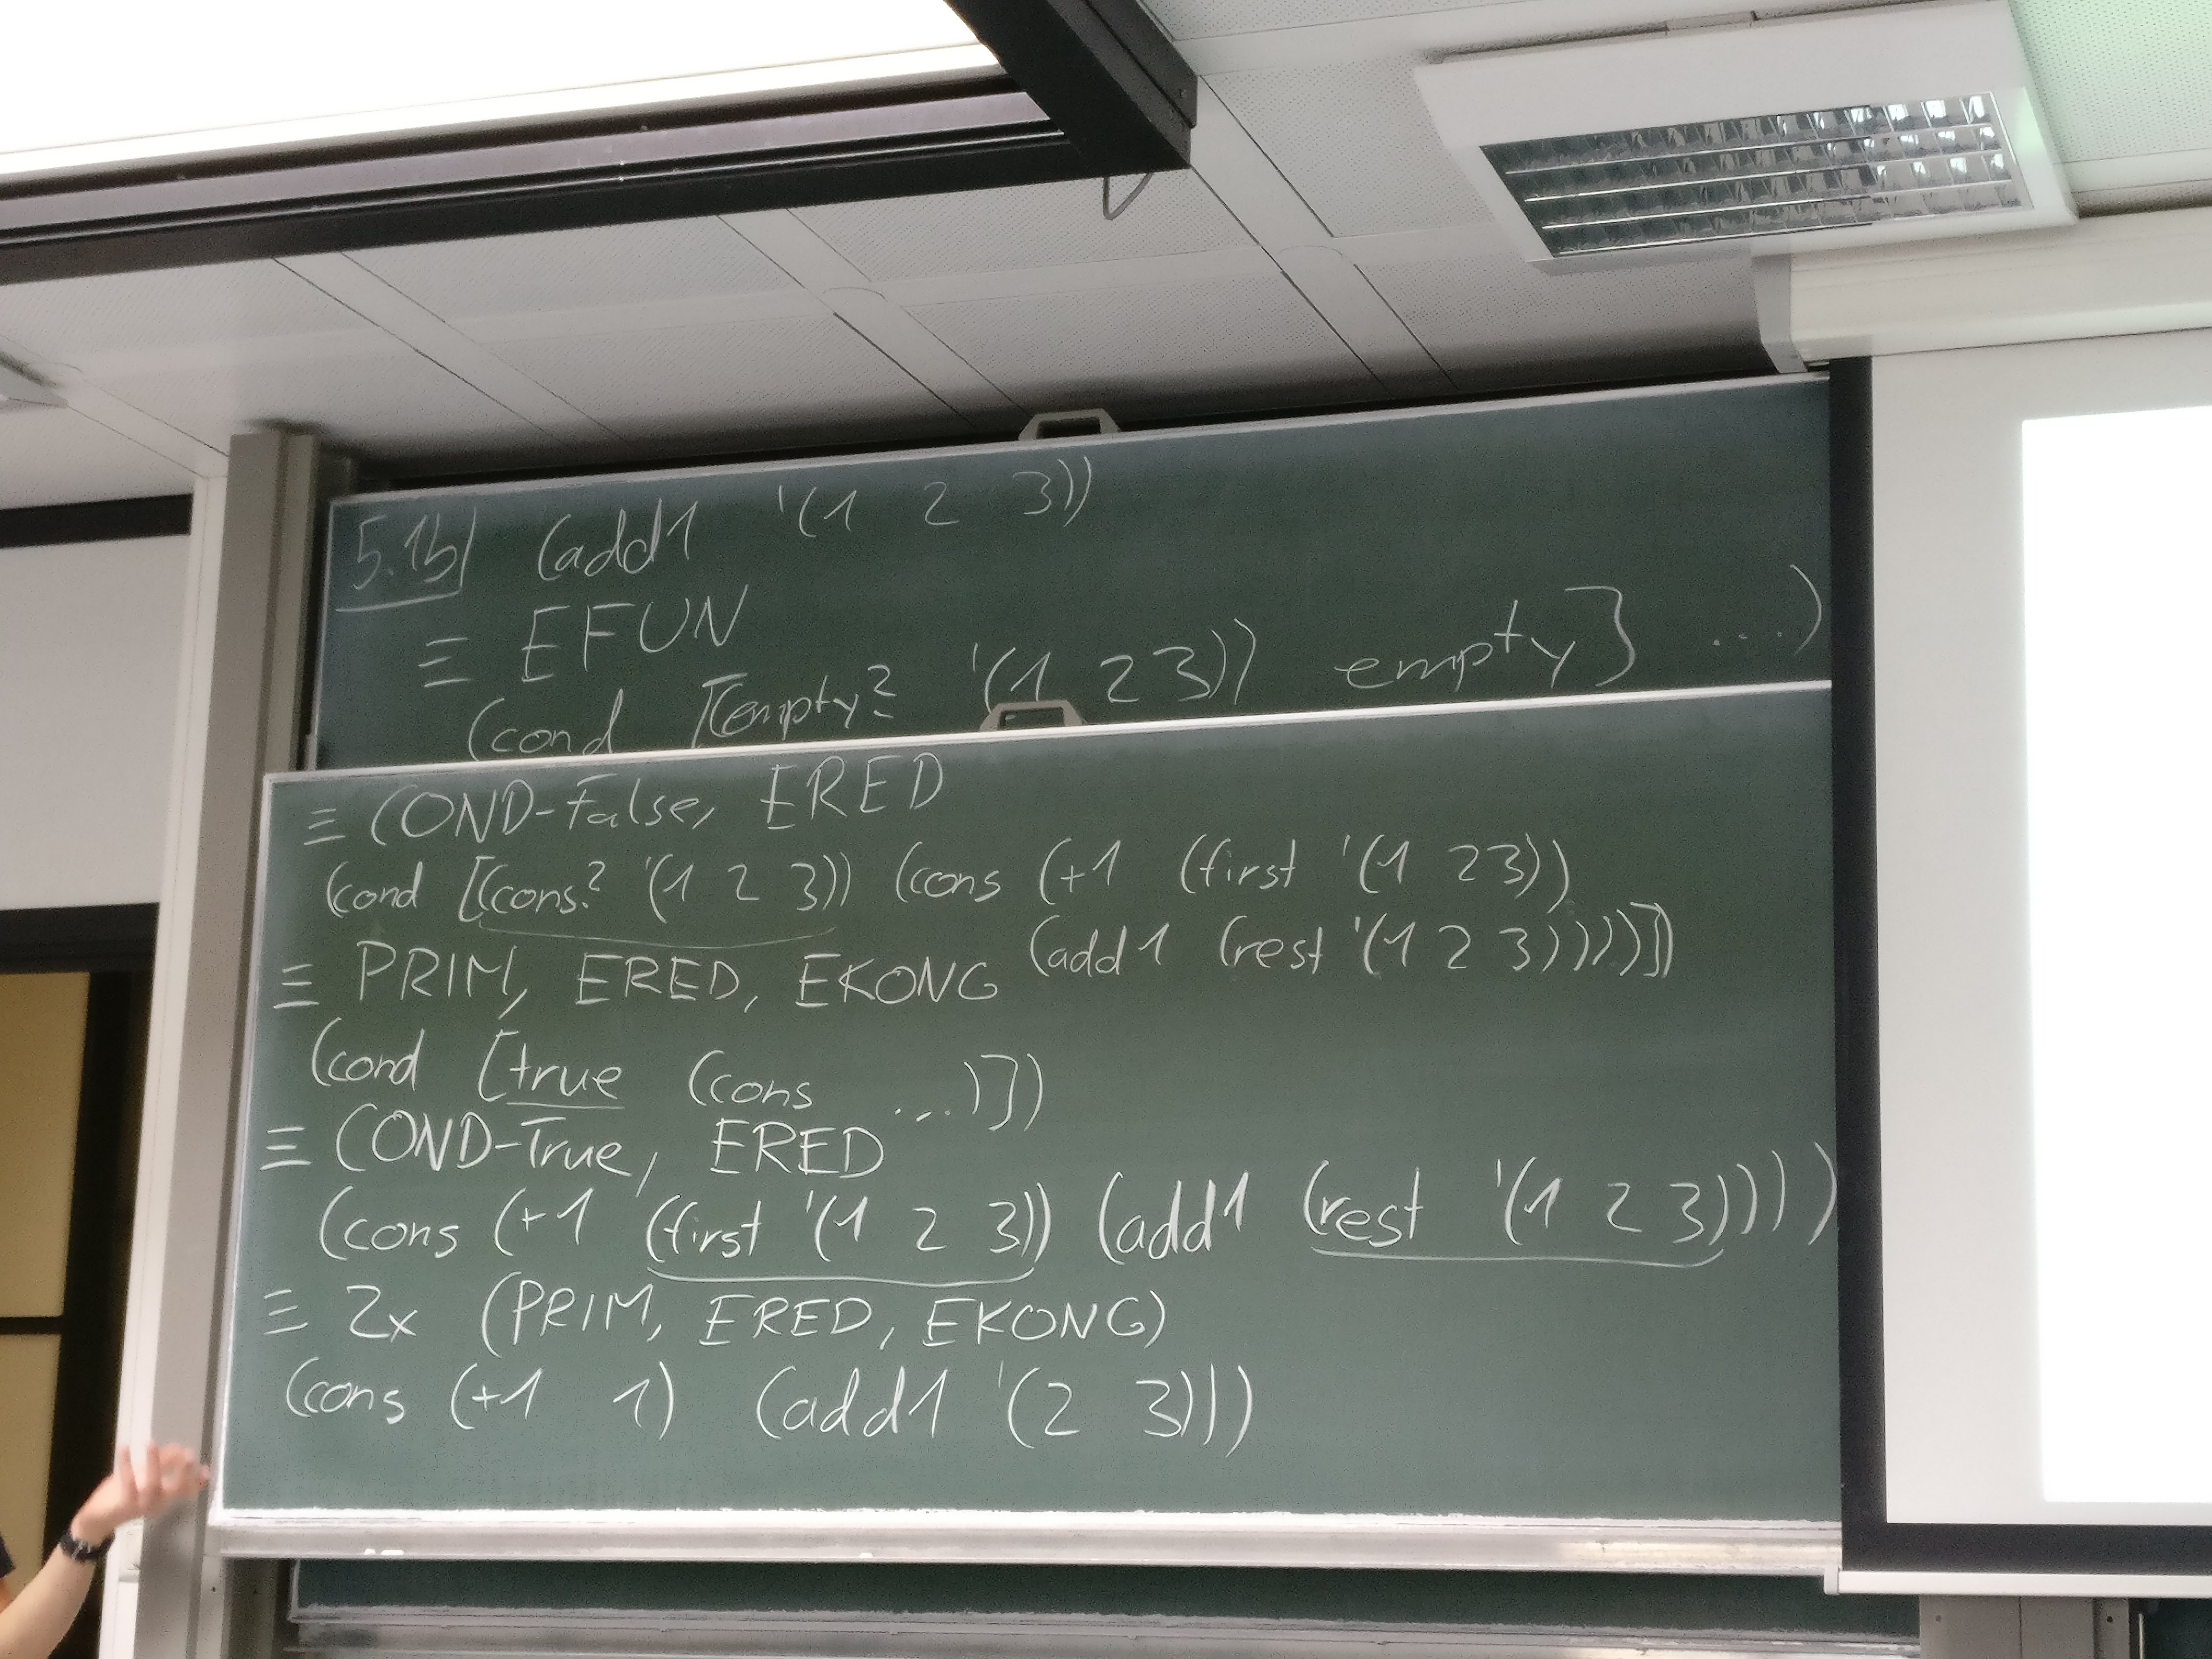 5.1b) (add1 '(1 2 3))
≡ EFUN
(cond [(empty? '(1 2 3)) empty] ...)
≡ COND-False, ERED
(cond [(cons? '(1 2 3)) (cons (+1 (first '(1 2 3))
(add1 (rest '(1 2 3)))))])
≡ PRIM, ERED, EKONG
(cond [true (cons ...)])
≡ COND-True, ERED
(cons (+1 (first '(1 2 3)) (add1 (rest '(1 2 3))))
≡ 2x (PRIM, ERED, EKONG)
(cons (+1 1) (add1 '(2 3)))